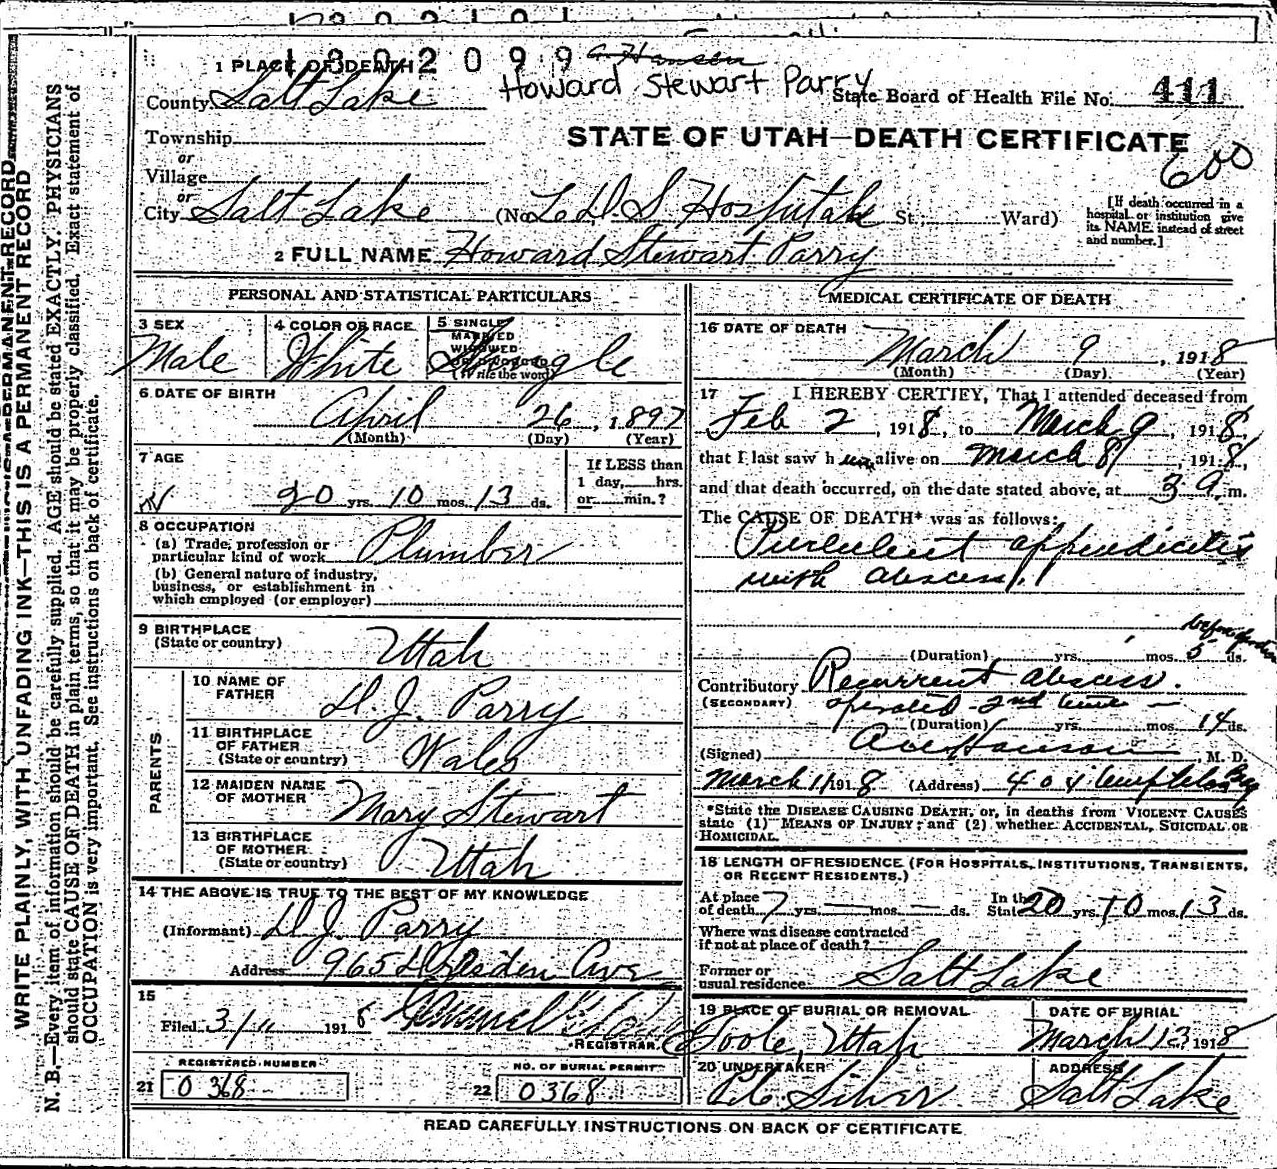 1302099
G Hansen
Howard Stewart Parry
1 PLACE OF DEATH
County Salt Lake
State Board of Health File No. 411
Township
or
Village
or
City Salt Lake (No. L D S Hospital St., Ward)
STATE OF UTAH—DEATH CERTIFICATE
600
[If death occurred in a
hospital or institution give
its NAME instead of street
and number.]
2 FULL NAME Howard Stewart Parry
PERSONAL AND STATISTICAL PARTICULARS
3 SEX
Male
4 COLOR OR RACE
White
5 SINGLE
MARRIED
WIDOWED
OR DIVORCED
(Write the word)
Single
6 DATE OF BIRTH
April 26, 1897
(Month) (Day) (Year)
7 AGE
20 yrs. 10 mos. 13 ds.
If LESS than
1 day, hrs.
or min.?
8 OCCUPATION
(a) Trade, profession or
particular kind of work Plumber
(b) General nature of industry,
business, or establishment in
which employed (or employer)
9 BIRTHPLACE
(State or country) Utah
PARENTS
10 NAME OF
FATHER D. J. Parry
11 BIRTHPLACE
OF FATHER
(State or country) Wales
12 MAIDEN NAME
OF MOTHER Mary Stewart
13 BIRTHPLACE
OF MOTHER
(State or country) Utah
14 THE ABOVE IS TRUE TO THE BEST OF MY KNOWLEDGE
(Informant) D J Parry
Address 965 Ave
15
Filed 3/11 1918
REGISTRAR
REGISTERED NUMBER
21 0368
NO. OF BURIAL PERMIT
22 0368
MEDICAL CERTIFICATE OF DEATH
16 DATE OF DEATH
March 9, 1918
(Month) (Day) (Year)
17 I HEREBY CERTIFY, That I attended deceased from
Feb 2, 1918, to March 9, 1918,
that I last saw h im alive on March 8, 1918,
and that death occurred, on the date stated above, at 3 a. m.
The CAUSE OF DEATH* was as follows:
Purulent appendicitis
with abscess.
before
(Duration) yrs. mos. 5 ds.
Contributory Recurrent abscess.
(SECONDARY) operated 2nd time
(Duration) yrs. mos. 14 ds.
(Signed) M. D.
March 11 1918 (Address) 404 Templeton Bg
*State the DISEASE CAUSING DEATH, or, in deaths from VIOLENT CAUSES
state (1) MEANS OF INJURY; and (2) whether ACCIDENTAL, SUICIDAL OR
HOMICIDAL.
18 LENGTH OF RESIDENCE (FOR HOSPITALS, INSTITUTIONS, TRANSIENTS,
OR RECENT RESIDENTS.)
At place
of death 7 yrs. — mos. — ds.
In the
State 20 yrs. 10 mos. 13 ds.
Where was disease contracted
if not at place of death?
Former or
usual residence Salt Lake
19 PLACE OF BURIAL OR REMOVAL
Toole, Utah
DATE OF BURIAL
March 13, 1918
20 UNDERTAKER
Silver
ADDRESS
Salt Lake
READ CAREFULLY INSTRUCTIONS ON BACK OF CERTIFICATE
WRITE PLAINLY, WITH UNFADING INK—THIS IS A PERMANENT RECORD
N. B.—Every item of information should be carefully supplied. AGE should be stated EXACTLY. PHYSICIANS
should state CAUSE OF DEATH in plain terms, so that it may be properly classified. Exact statement of
OCCUPATION is very important. See instructions on back of certificate.